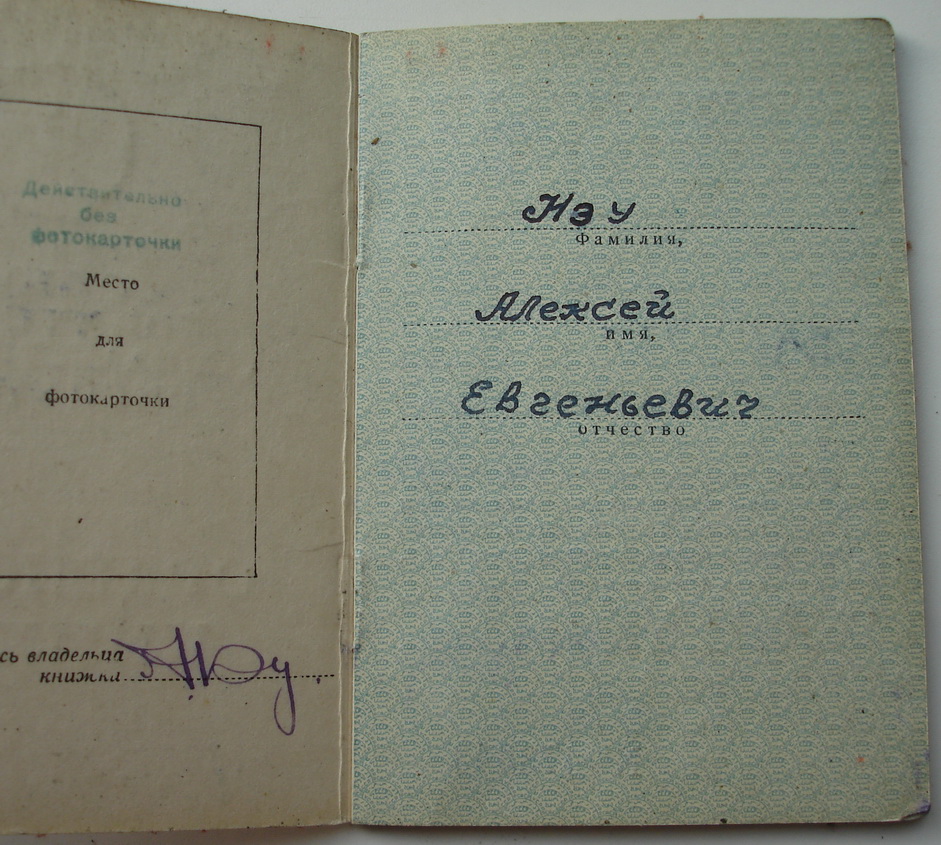 Действительно
без
фотокарточки
Место
для
фотокарточки
сь владельца
книжки
Нэу
Фамилия,
Алексей
имя,
Евгеньевич
отчество